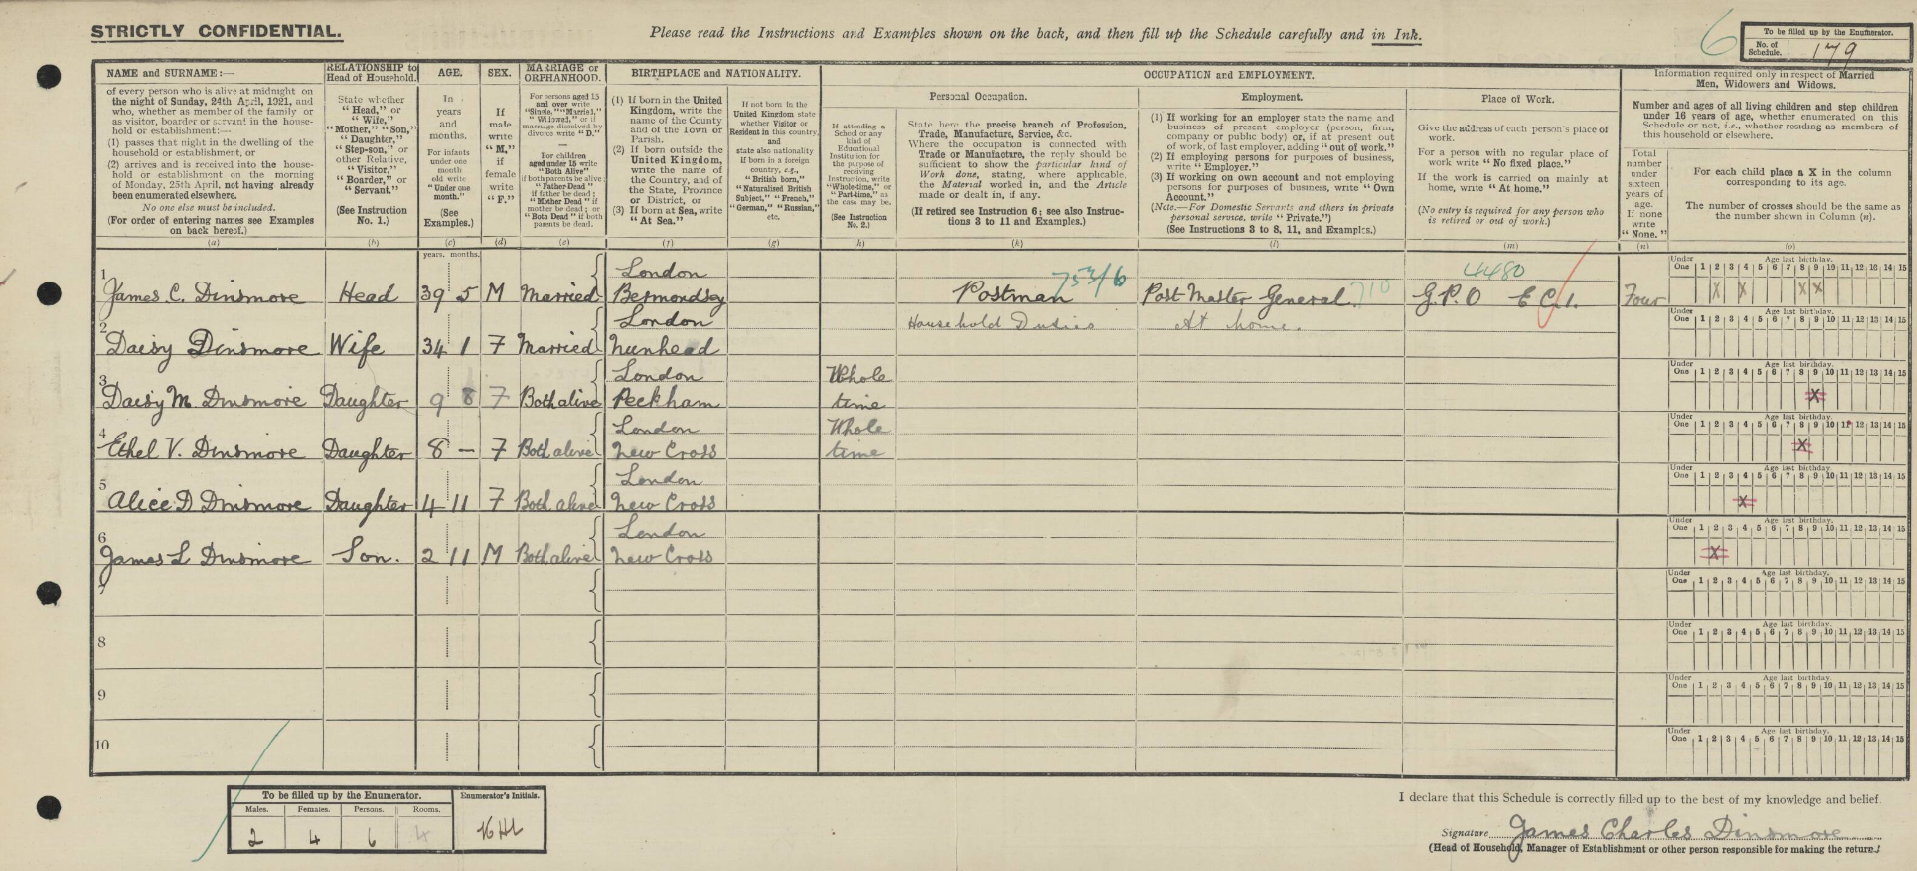 STRICTLY CONFIDENTIAL.
Please read the Instructions and Examples shown on the back, and then fill up the Schedule carefully and in Ink.
6
To be filled up by the Enumerator.
No. of Schedule. 179
NAME and SURNAME:—
of every person who is alive at midnight on
the night of Sunday, 24th April, 1921, and
who, whether as member of the family or
as visitor, boarder or servant in the house-
hold or establishment:—
(1) passes that night in the dwelling of the
household or establishment, or
(2) arrives and is received into the house-
hold or establishment on the morning
of Monday, 25th April, not having already
been enumerated elsewhere.
No one else must be included.
(For order of entering names see Examples
on back hereof.)
(a)
RELATIONSHIP to
Head of Household.
State whether
"Head," or
"Wife,"
"Mother," "Son,"
"Daughter,"
"Step-son," or
other Relative,
"Visitor,"
"Boarder," or
"Servant."
(See Instruction
No. 1.)
(b)
AGE.
In
years
and
months.
For infants
under one
month
old write
"Under one
month."
(See
Examples.)
(c)
SEX.
If
male
write
"M,"
if
female
write
"F."
(d)
MARRIAGE or
ORPHANHOOD.
For persons aged 15
and over write
"Single," "Married,"
"Widowed," or if
marriage dissolved by
divorce write "D."
—
For children
aged under 15 write
"Both Alive"
if both parents be alive;
"Father Dead"
if father be dead;
"Mother Dead" if
mother be dead; or
"Both Dead" if both
parents be dead.
(e)
BIRTHPLACE and NATIONALITY.
(1) If born in the United
Kingdom, write the
name of the County
and of the Town or
Parish.
(2) If born outside the
United Kingdom,
write the name of
the Country, and of
the State, Province
or District, or
(3) If born at Sea, write
"At Sea."
(f)
If not born in the
United Kingdom state
whether Visitor or
Resident in this country,
and
state also nationality
if born in a foreign
country, e.g.,
"British born,"
"Naturalised British
Subject," "French,"
"German," "Russian,"
etc.
(g)
If attending a
School or any
kind of
Educational
Institution for
the purpose of
receiving
Instruction, write
"Whole-time," or
"Part-time," as
the case may be.
(See Instruction
No. 2.)
(h)
OCCUPATION and EMPLOYMENT.
Personal Occupation.
State here the precise branch of Profession,
Trade, Manufacture, Service, &c.
Where the occupation is connected with
Trade or Manufacture, the reply should be
sufficient to show the particular kind of
Work done, stating, where applicable,
the Material worked in, and the Article
made or dealt in, if any.
(If retired see Instruction 6; see also Instruc-
tions 3 to 11 and Examples.)
(k)
Employment.
(1) If working for an employer state the name and
business of present employer (person, firm,
company or public body) or, if at present out
of work, of last employer, adding "out of work."
(2) If employing persons for purposes of business,
write "Employer."
(3) If working on own account and not employing
persons for purposes of business, write "Own
Account."
(Note.—For Domestic Servants and others in private
personal service, write "Private.")
(See Instructions 3 to 8, 11, and Examples.)
(l)
Place of Work.
Give the address of each person's place of
work.
For a person with no regular place of
work write "No fixed place."
If the work is carried on mainly at
home, write "At home."
(No entry is required for any person who
is retired or out of work.)
(m)
Information required only in respect of Married
Men, Widowers and Widows.
Number and ages of all living children and step children
under 16 years of age, whether enumerated on this
Schedule or not, i.e., whether residing as members of
this household or elsewhere.
Total
number
under
sixteen
years of
age.
If none
write
"None."
(n)
For each child place a X in the column
corresponding to its age.
The number of crosses should be the same as
the number shewn in Column (n).
(o)
years. months.
Under One Age last birthday. 1 2 3 4 5 6 7 8 9 10 11 12 13 14 15
1 James C. Dinsmore Head 39 5 M Married London Bermondsey Postman 753/6 Post Master General 710 4480 G.P.O E C.1. Four X X X X
Under One Age last birthday. 1 2 3 4 5 6 7 8 9 10 11 12 13 14 15
2 Daisy Dinsmore Wife 34 1 F Married London Nunhead Household Duties At home.
Under One Age last birthday. 1 2 3 4 5 6 7 8 9 10 11 12 13 14 15
3 Daisy M. Dinsmore Daughter 9 8 F Both alive London Peckham Whole time X
Under One Age last birthday. 1 2 3 4 5 6 7 8 9 10 11 12 13 14 15
4 Ethel V. Dinsmore Daughter 8 — F Both alive London New Cross Whole time X
Under One Age last birthday. 1 2 3 4 5 6 7 8 9 10 11 12 13 14 15
5 Alice D Dinsmore Daughter 4 11 F Both alive London New Cross X
Under One Age last birthday. 1 2 3 4 5 6 7 8 9 10 11 12 13 14 15
6 James L Dinsmore Son. 2 11 M Both alive London New Cross X
Under One Age last birthday. 1 2 3 4 5 6 7 8 9 10 11 12 13 14 15
7
Under One Age last birthday. 1 2 3 4 5 6 7 8 9 10 11 12 13 14 15
8
Under One Age last birthday. 1 2 3 4 5 6 7 8 9 10 11 12 13 14 15
9
Under One Age last birthday. 1 2 3 4 5 6 7 8 9 10 11 12 13 14 15
10
To be filled up by the Enumerator.
Males. Females. Persons. Rooms.
2 4 6 4
Enumerator's Initials.
I declare that this Schedule is correctly filled up to the best of my knowledge and belief.
Signature James Charles Dinsmore
(Head of Household, Manager of Establishment or other person responsible for making the return.)